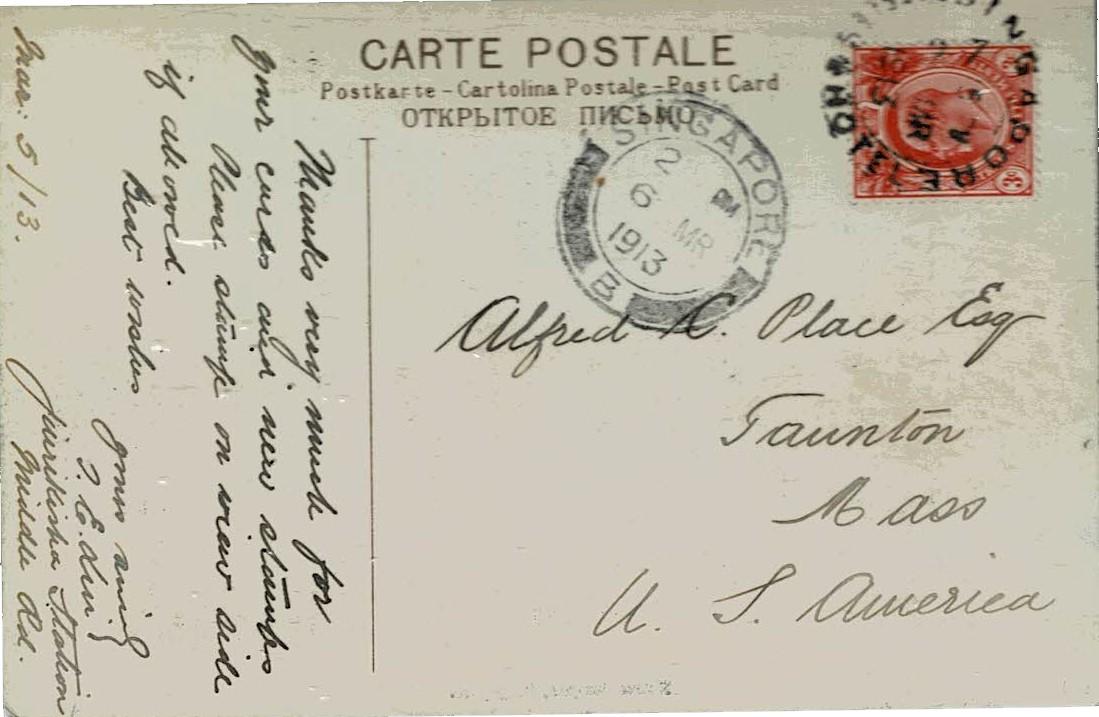 CARTE POSTALE
Postkarte - Cartolina Postale - Post Card
ОТКРЫТОЕ ПИСЬМО
SINGAPORE
2
6 MR
1913
B
SINGAPORE
MR
13
Alfred C. Place Esq
Taunton
Mass
U. S. America
Thanks very much for
your cards and new stamps
Please stamp on view side
if allowed.
Best wishes
Jinrikisha Station
Middle Rd.
5/13.